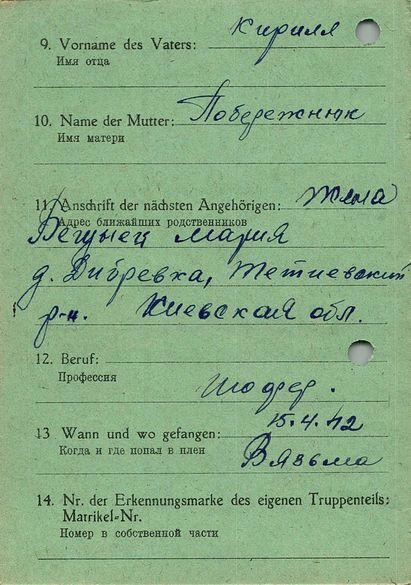 9. Vorname des Vaters: Кирилл
Имя отца
10. Name der Mutter: Побережнюк
Имя матери
11. Anschrift der nächsten Angehörigen: Жена
Адрес ближайших родственников
Бегунец Мария
д. Дибревка, Тетиевский
р-н. Киевская обл.
12. Beruf:
Профессия
шофер.
13 Wann und wo gefangen: 15.4.42
Когда и где попал в плен Вязьма
14. Nr. der Erkennungsmarke des eigenen Truppenteils:
Matrikel-Nr.
Номер в собственной части